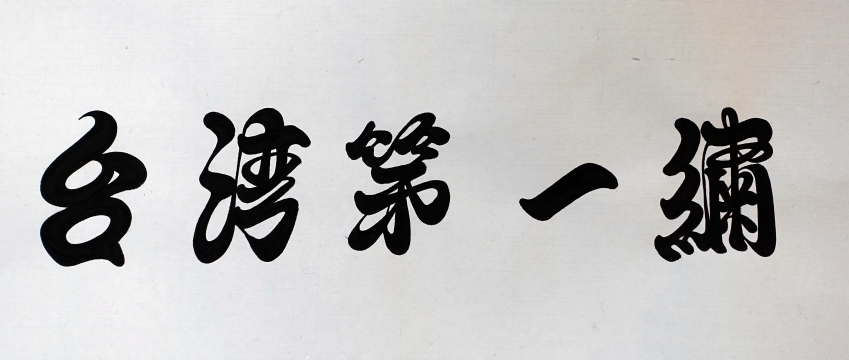 台湾第一繡